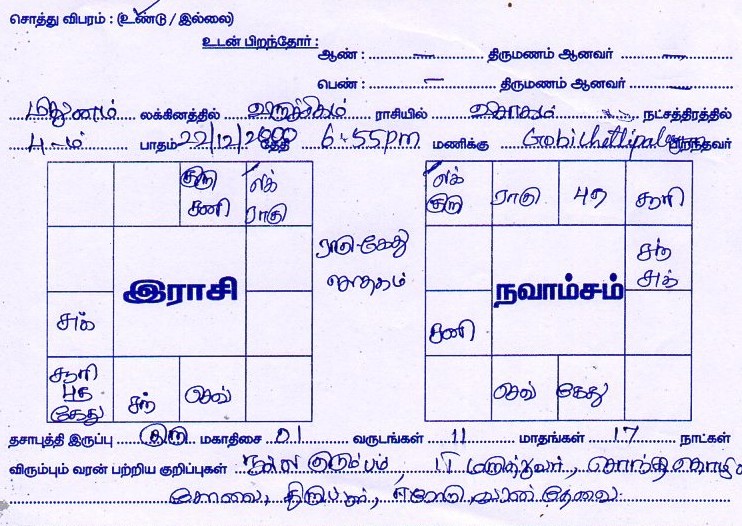 சொத்து விபரம் : (உண்டு / இல்லை)
உடன் பிறந்தோர் :
ஆண் : — திருமணம் ஆனவர் —
பெண் : — திருமணம் ஆனவர் —
மிதுனம் லக்கினத்தில் விருச்சிகம் ராசியில் விசாகம் நட்சத்திரத்தில்
4-ம் பாதம் 22/12/2000 தேதி 6-55pm மணிக்கு Gobichettipalayam பிறந்தவர்
குரு சனி
லக் ராகு
ராகு-கேது ஜாதகம்
இராசி
சுக்
சூரி புத கேது
சந்
செவ்
லக் குரு
ராகு
புத
சூரி
சந் சுக்
நவாம்சம்
சனி
செவ்
கேது
தசாபுத்தி இருப்பு குரு மகாதிசை 01 வருடங்கள் 11 மாதங்கள் 17 நாட்கள்
விரும்பும் வரன் பற்றிய குறிப்புகள் நல்ல குடும்பம், IT மருத்துவர், சொந்த தொழில்
கோவை, திருப்பூர், ஈரோடு, வரன் தேவை.